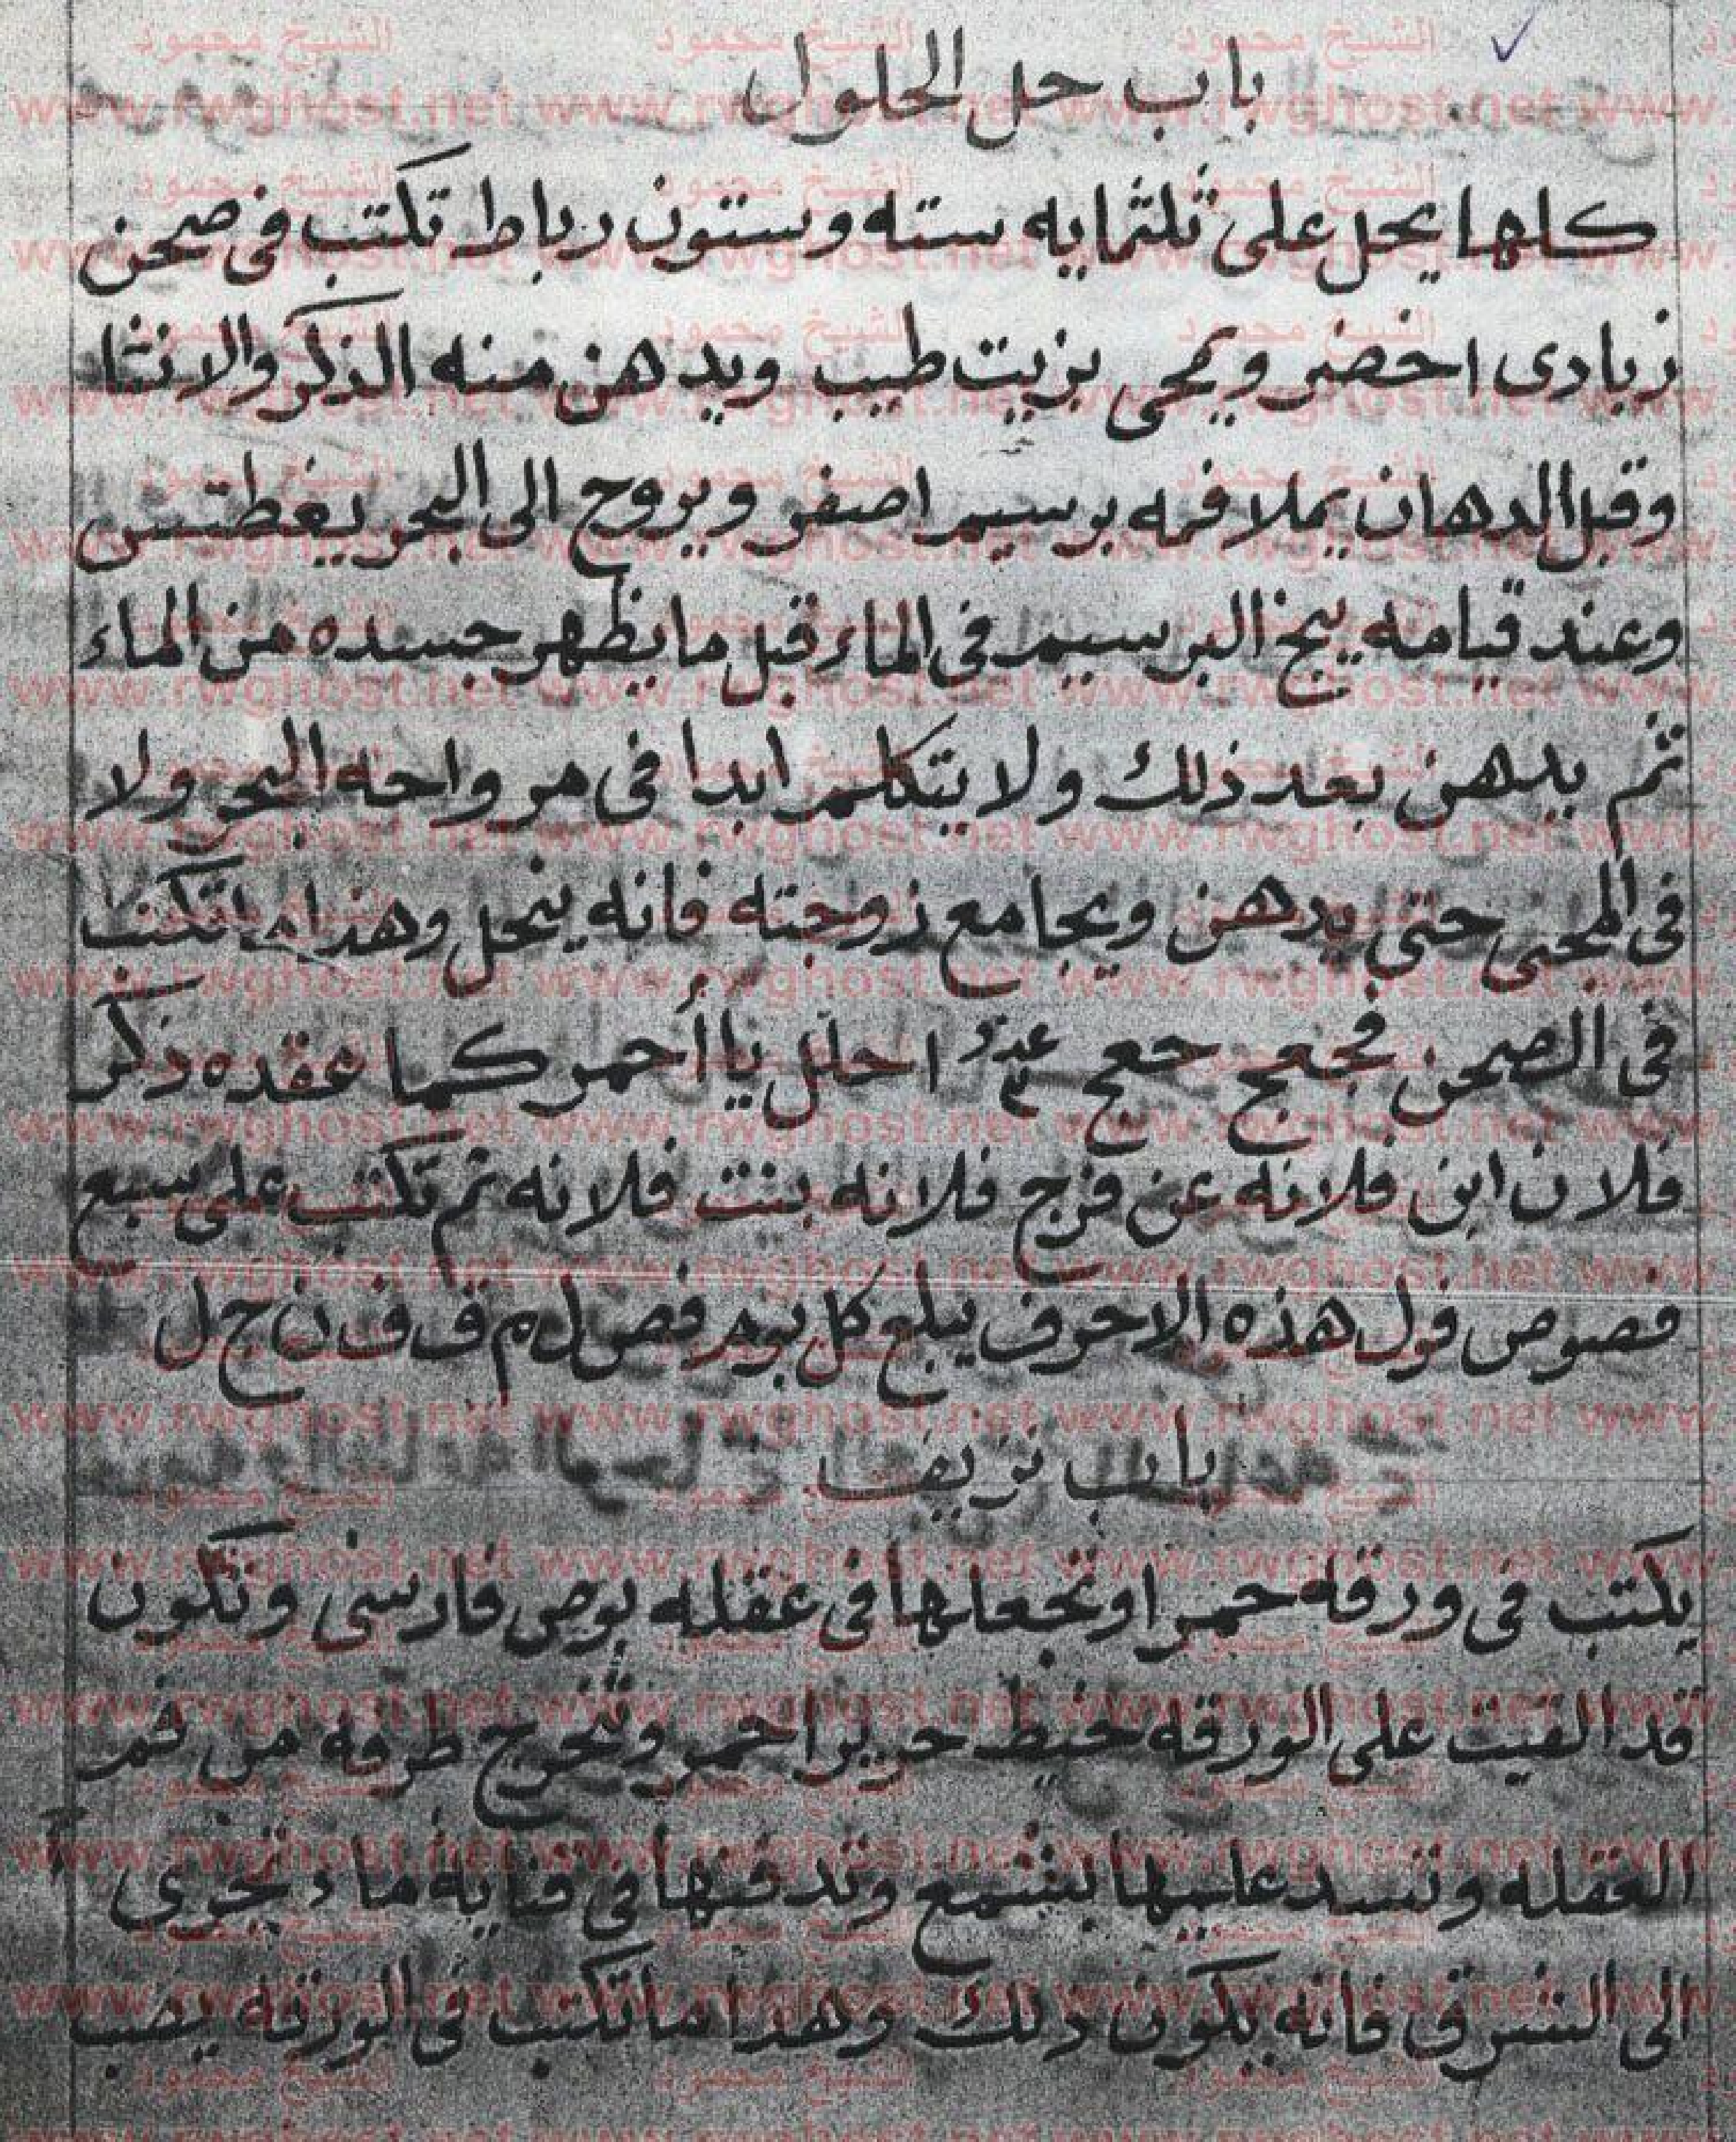 باب حل الحلول
كلها يحل على ثلثمايه سته وستون رباط تكتب فى صحن
زبادى اخضر ويمحى بزيت طيب ويدهن منه الذكر والانثا
وقبل الدهان يملا فمه برسيم اصفر ويروح الى البحر يغطتس
وعند قيامه يبخ البرسيم فى الماء قبل ما يظهر جسده من الماء
ثم يدهن بعد ذلك ولا يتكلم ابدا فى مرواحه البحر ولا
فى المجى حتى يدهن ويجامع زوجته فانه ينحل وهذا ما تكتب
فى الصحن فجعج حعج احلل يا أحمر كما عقده ذكر
فلان ابن فلانه عن فرج فلانه بنت فلانه ثم تكتب على سبع
فصوص فول هذه الاحرف يبلع كل يوم فص ل م ق ف ن ج ل
باب نزيف
يكتب فى ورقه حمرا وتجعلها فى عقله بوص فارسى وتكون
قد القيت على الورقه خيط حرير احمر وتخرج طرفه من فم
العقله وتسد عليها بشمع وتدفنها فى قنايه ماء تجرى
الى الشرق فانه يكون ذلك وهذا ما تكتب فى الورقه يصب
الشيخ محمود
www.rwghost.net